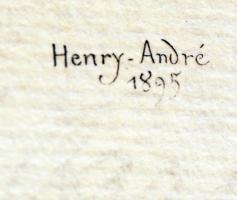 Henry-André
1895